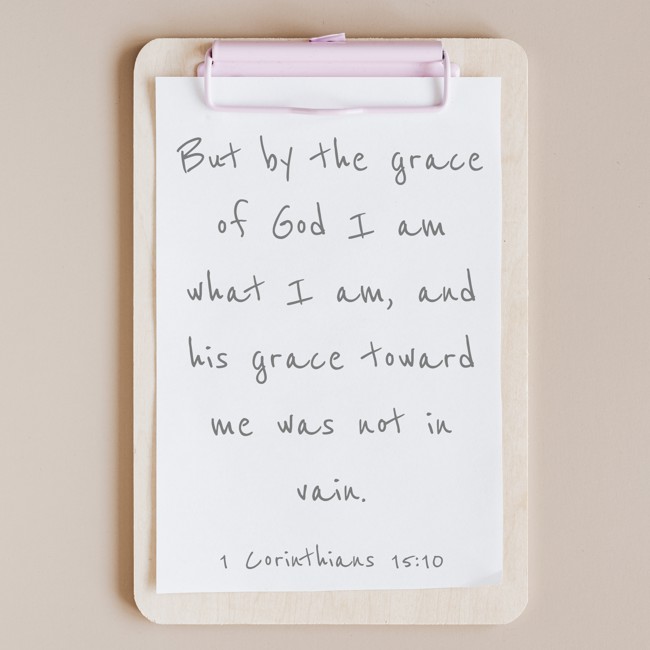 But by the grace
of God I am
what I am, and
his grace toward
me was not in
vain.
1 Corinthians 15:10